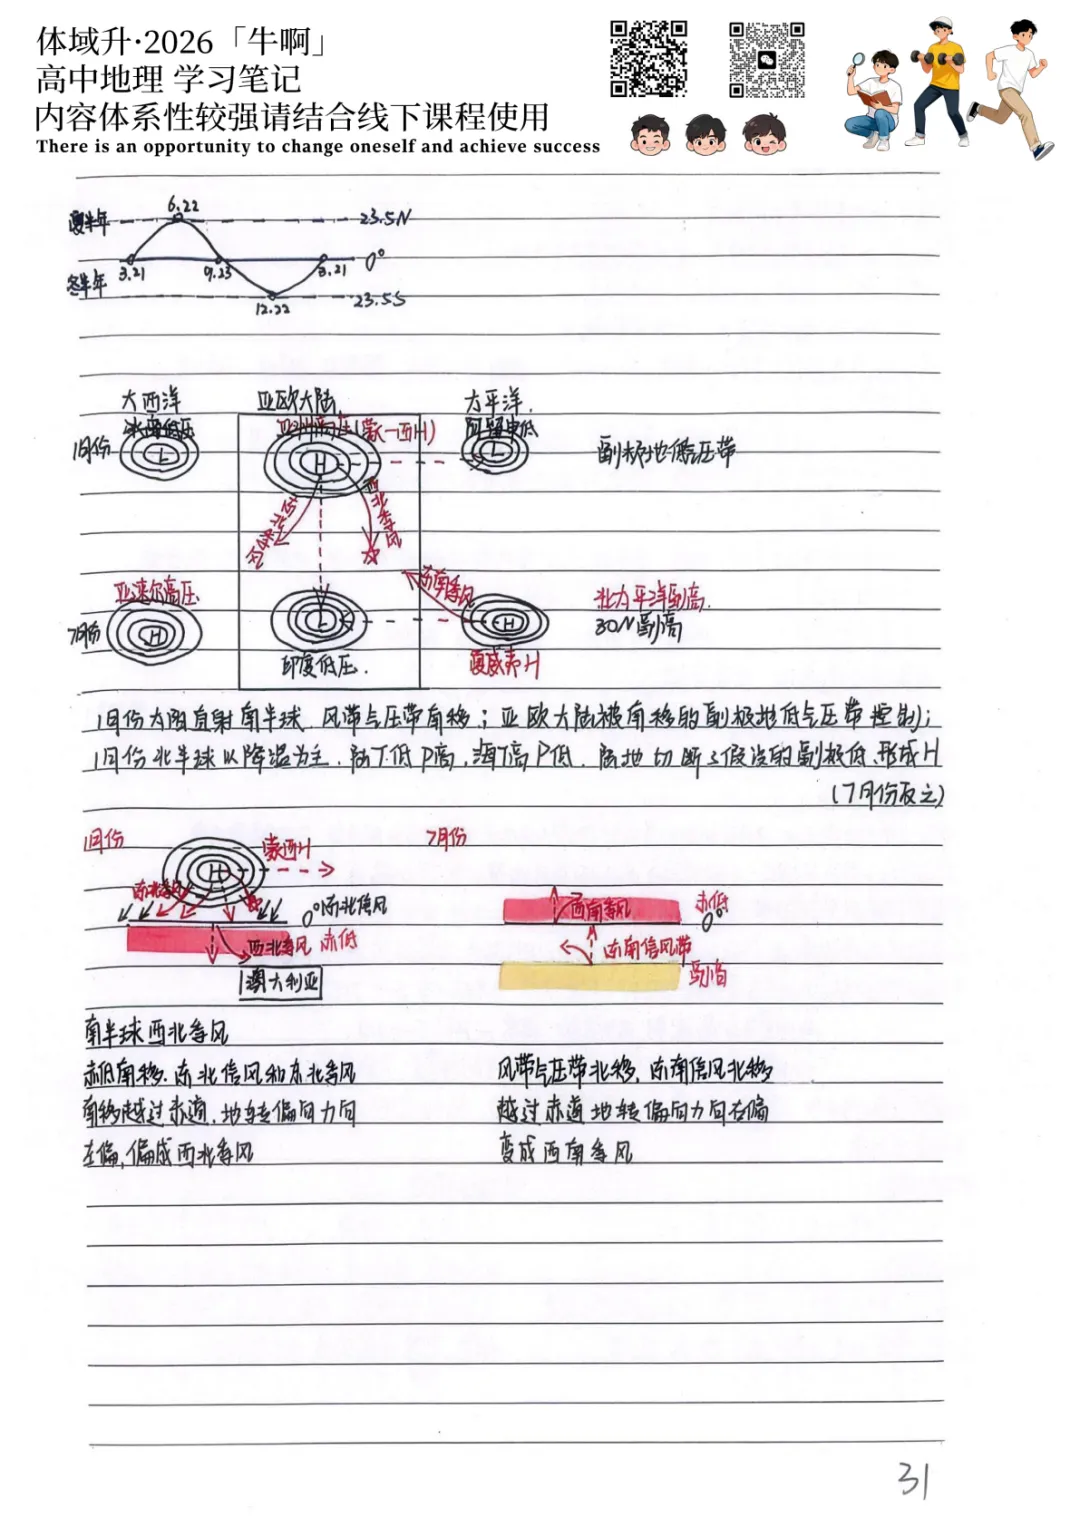 体域升·2026「牛啊」
高中地理 学习笔记
内容体系性较强请结合线下课程使用
There is an opportunity to change oneself and achieve success
夏半年 6.22 23.5N
3.21 9.23 3.21 0°
冬半年 12.22 23.5S
大西洋 亚欧大陆 太平洋
冰岛低压 亚洲高压(蒙-西H)
1月份 L H L 副极地低压带
西北季风
东南季风
亚速尔高压 北太平洋副高
7月份 H L H 30N副高
印度低压 夏威夷H
1月份太阳直射南半球、风带气压带南移；亚欧大陆被南移的副极地低气压带控制；
1月份北半球以降温为主、陆T低P高，海T高P低、陆地切断了假设的副极低形成H
(7月份反之)
1月份 蒙西H 7月份
H
东北季风 0°东北信风 西南季风 赤低 0°
西北季风 赤低 东南信风带
澳大利亚
南半球西北季风
赤低南移、东北信风和东北季风 风带气压带北移、东南信风北移
南移越过赤道、地转偏向力向 越过赤道地转偏向力向右偏
左偏，偏成西北季风 变成西南季风
31